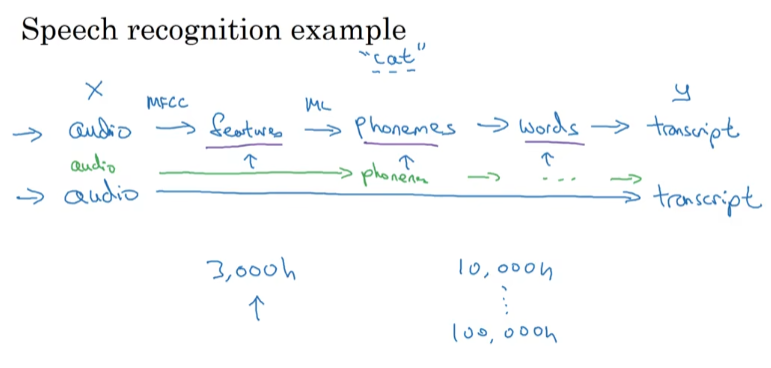 Speech recognition example
"cat"
X MFCC ML y
→ audio → features → Phonemes → words → transcript
audio → phonem → ... →
→ audio → transcript
3,000h 10,000h
100,000h